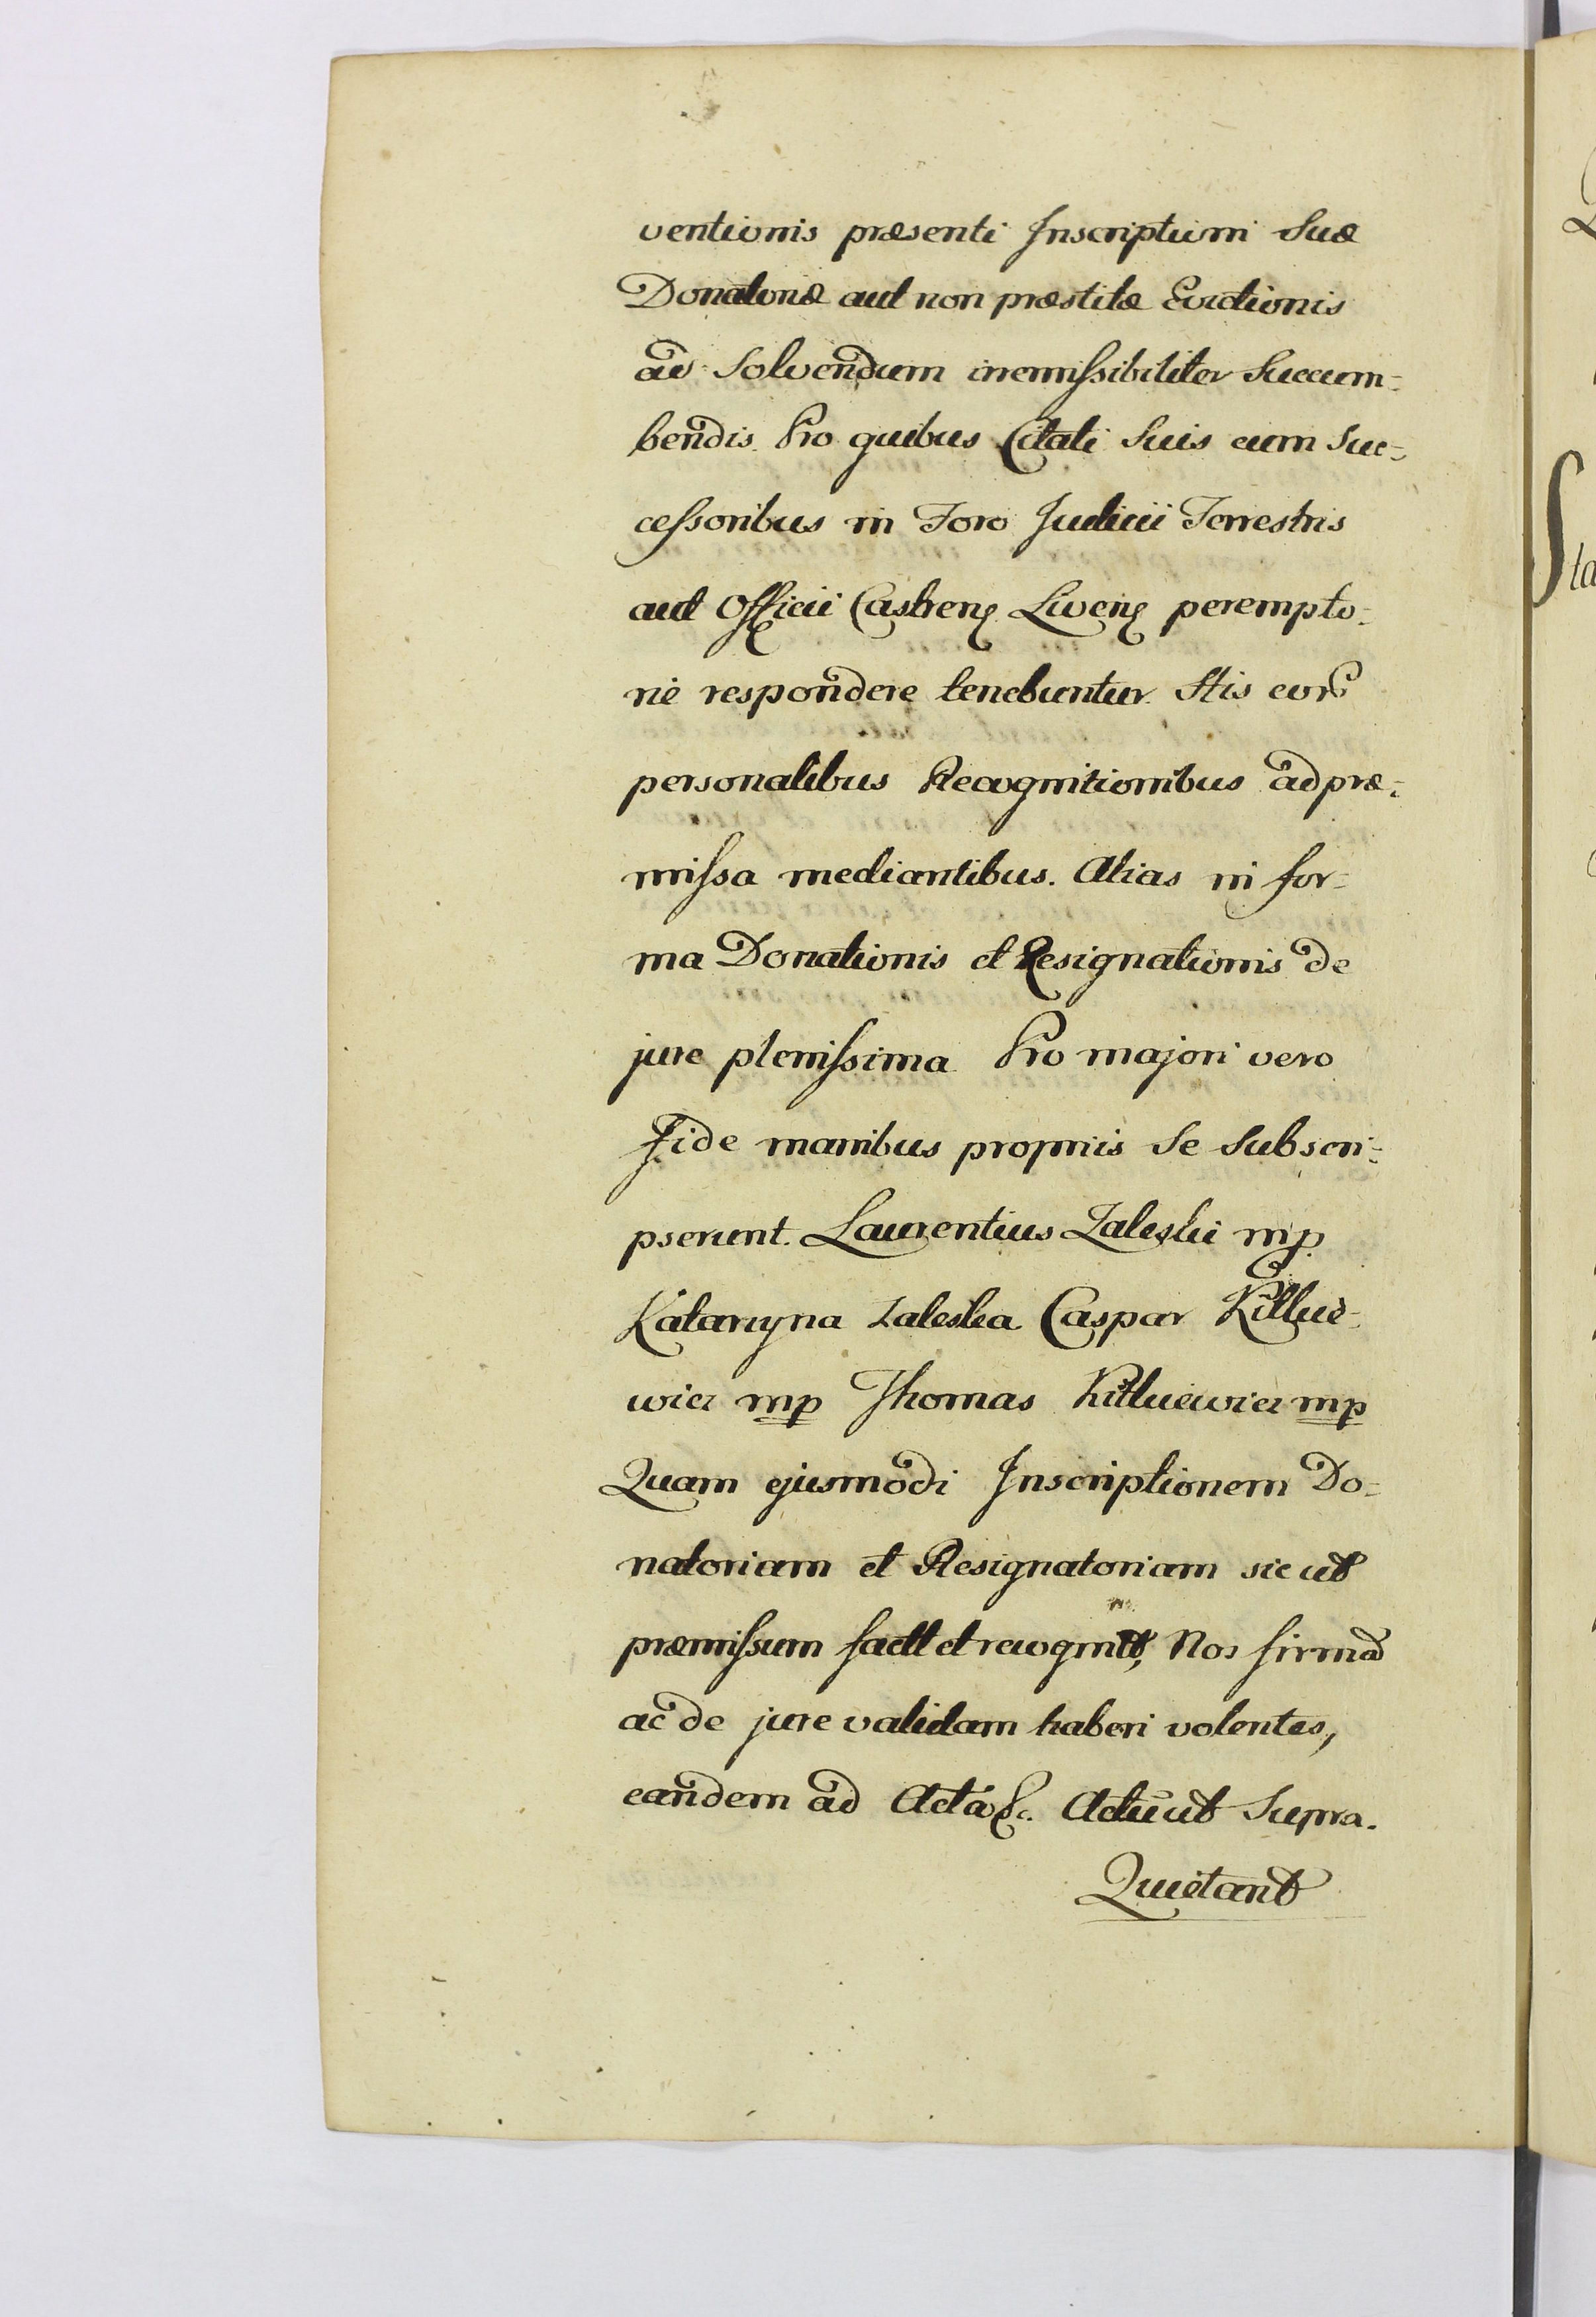 ventionis præsenti Inscriptioni Suæ
Donatoriæ aut non præstitæ Evictionis
ad Solvendum irremissibiliter Succum=
bendis. Pro quibus Citati Suis cum Suc=
cessoribus in Foro Judicii Terrestris
aut Officii Castren. Liven. perempto=
rie respondere tenebuntur. His eor
personalibus Recognitionibus ad præ=
missa mediantibus. Alias in for=
ma Donationis et Resignationis de
jure plenissima Pro majori vero
Fide manibus propriis Se Subscri=
pserunt. Laurentius Zaleski mp.
Katarzyna Zaleska Caspar Kitlue=
wicz mp Thomas Kitluewicz mp
Quam ejusmodi Inscriptionem Do=
natoriam et Resignatoriam sic ut
præmissum fact et recognit, Nos firmã
ac de jure validam haberi volentes,
eandem ad Acta &c. Actũ ut Supra.
Quietant